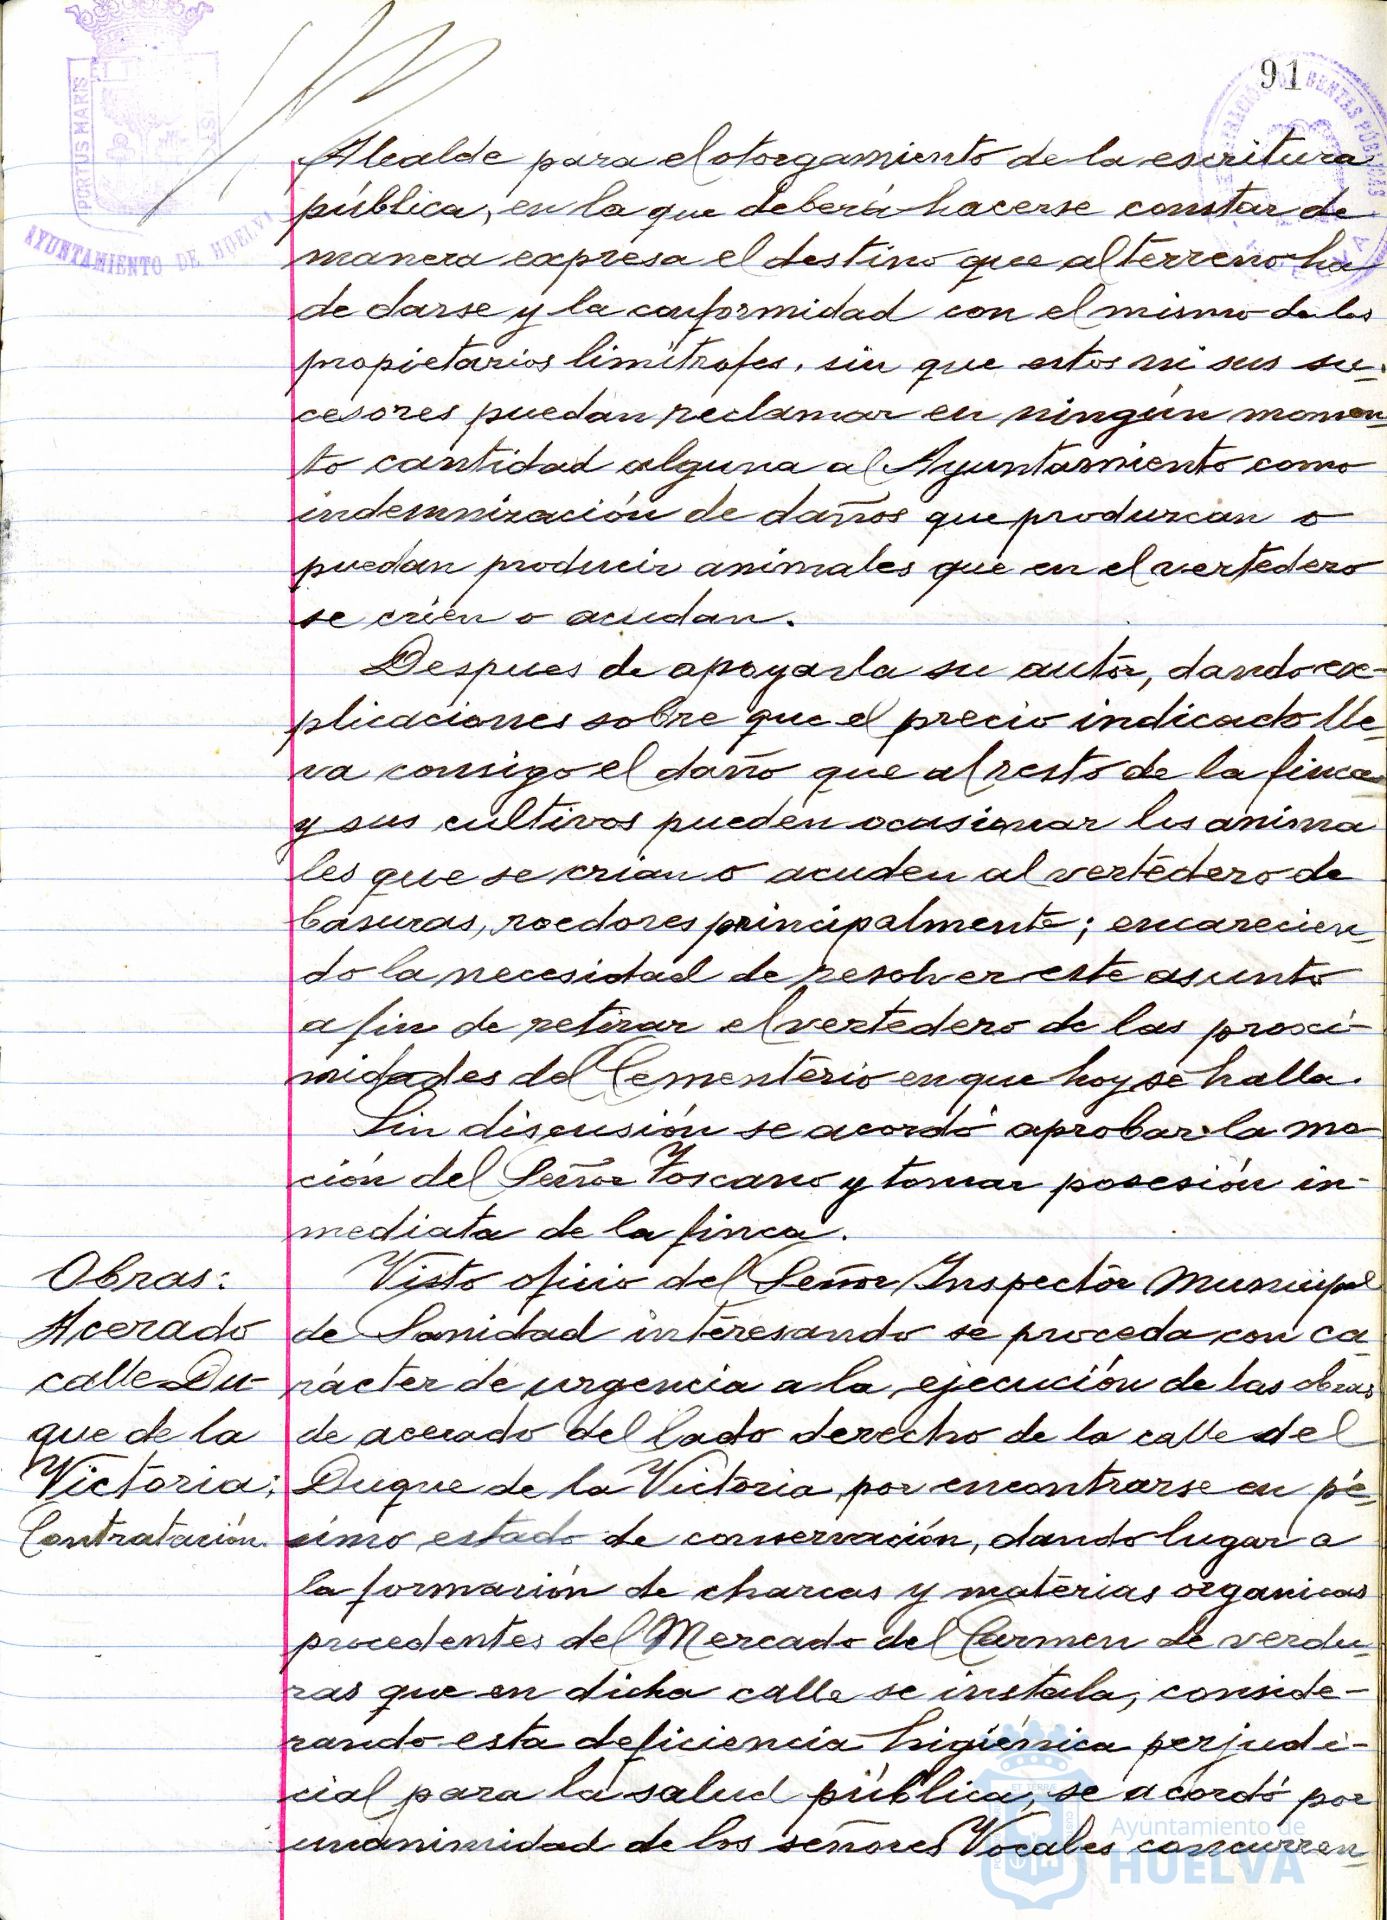 91
PORTUS MARIS
AYUNTAMIENTO DE HUELVA
Alcalde para el otorgamiento de la escritura
pública, en la que deberá hacerse constar de
manera expresa el destino que al terreno ha
de darse y la conformidad con el mismo de los
propietarios limítrofes, sin que estos ni sus su-
cesores puedan reclamar en ningún momen-
to cantidad alguna al Ayuntamiento como
indemnización de daños que produzcan o
puedan producir animales que en el vertedero
se crien o acudan.
Despues de apoyarla su autor, dando ex-
plicaciones sobre que el precio indicado lle-
va consigo el daño que al resto de la finca
y sus cultivos pueden ocasionar los anima
les que se crian o acuden al vertedero de
basuras, roedores principalmente; encarecien-
do la necesidad de resolver este asunto
a fin de retirar el vertedero de las proxi-
midades del Cementerio en que hoy se halla.
Sin discusión se acordó aprobar la mo
ción del Señor Toscano y tomar posesión in-
mediata de la finca.
Obras:
Acerado
calle Du-
que de la
Victoria;
Contratación.
Visto oficio del Señor Inspector Municipal
de Sanidad interesando se proceda con ca-
rácter de urgencia a la ejecución de las obras
de acerado del lado derecho de la calle del
Duque de la Victoria, por encontrarse en pé-
simo estado de conservación, dando lugar a
la formación de charcas y materias organicas
procedentes del Mercado del Carmen de verdu-
ras que en dicha calle se instala; conside-
rando esta deficiencia higiénica perjudi-
cial para la salud pública, se acordó por
unanimidad de los señores Vocales concurren-
Ayuntamiento de
HUELVA